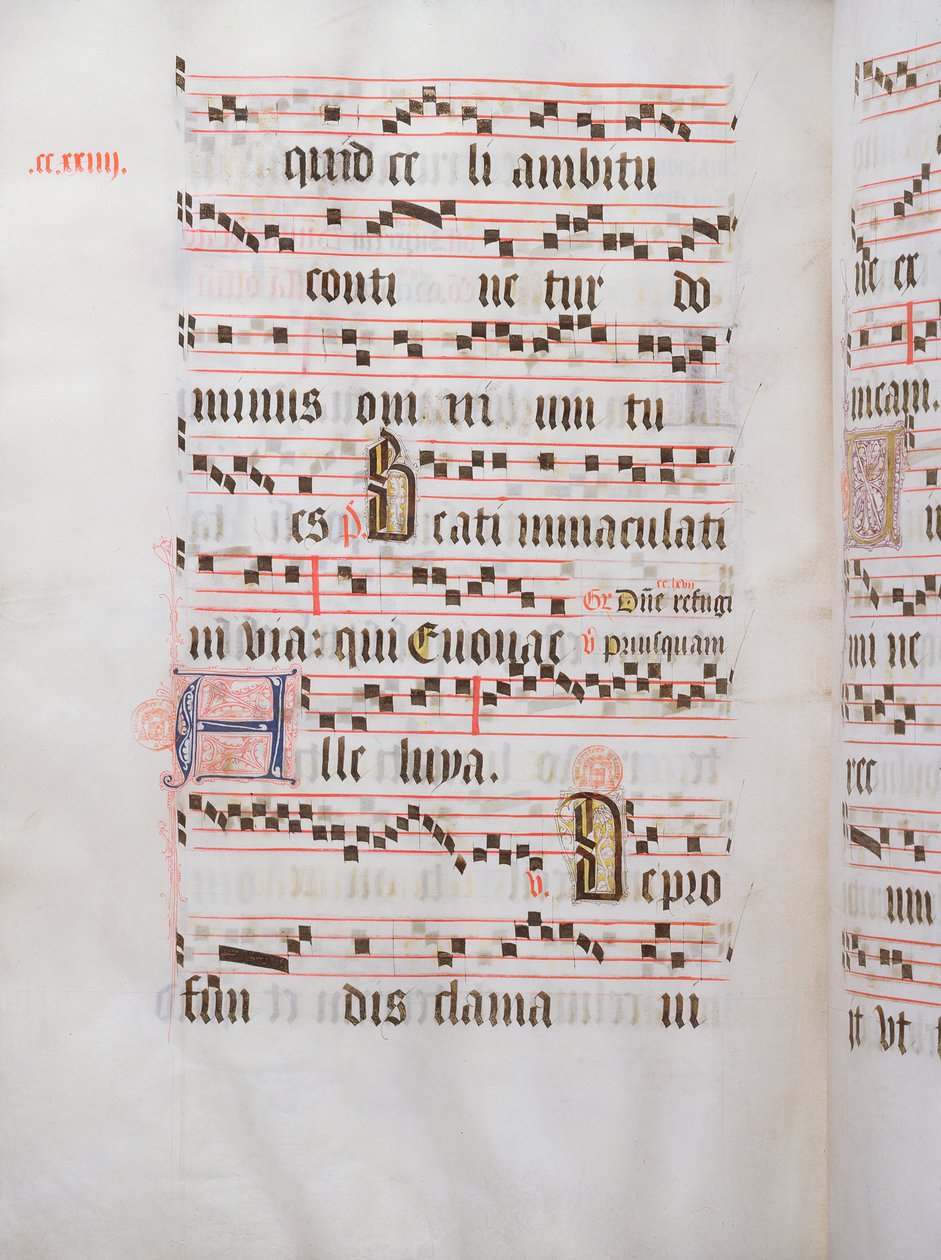 .cc.xxiiij.
quid ce li ambitu
conti ne tur do
minus om ni um tu
es p. Beati immaculati
cc. lxvij
Gr Dñe refugi
in via: qui Euouae v̄ priusquam
Alle luya.
v. De pro
fun dis clama ui
ne ex
mi ne
um
it vt